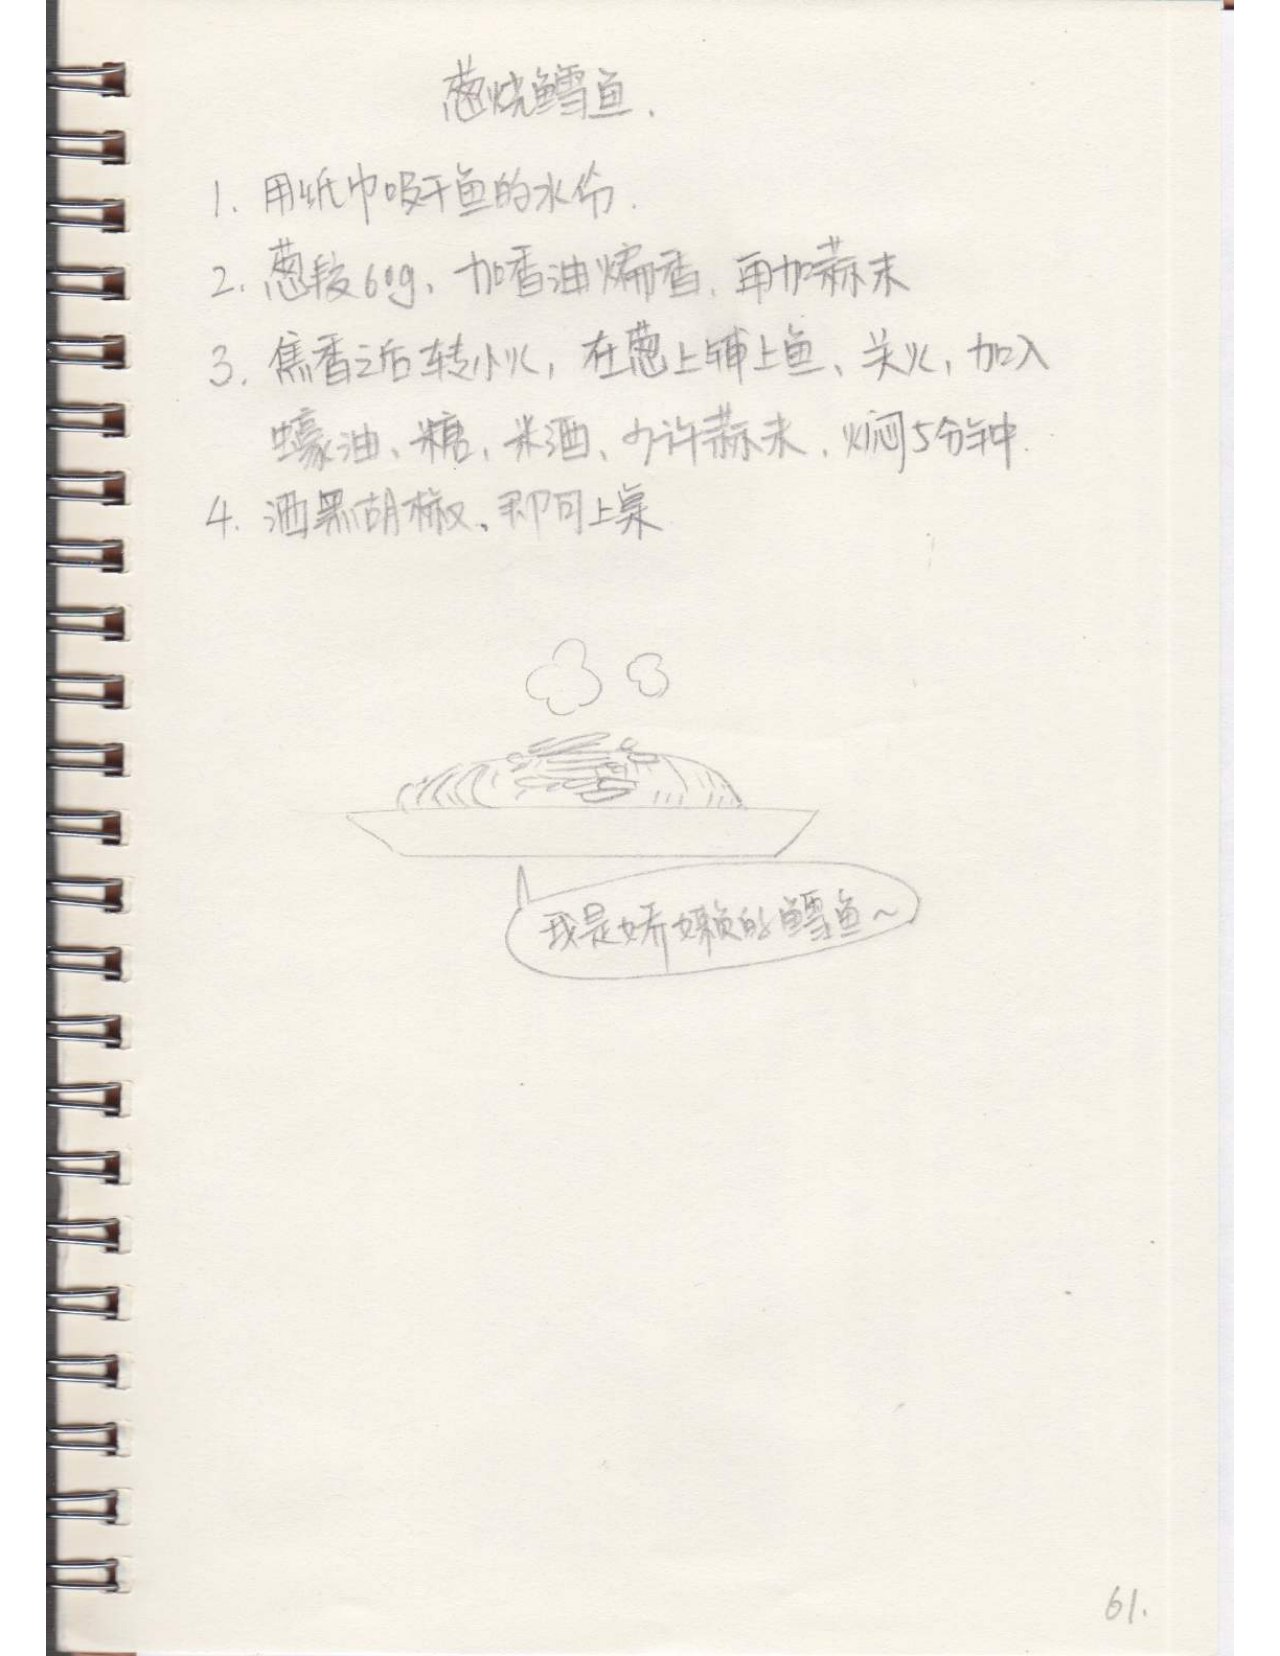 葱烧鳕鱼.
1. 用纸巾吸干鱼的水份.
2. 葱段60g、加香油煸香, 再加蒜末
3. 焦香之后转小火, 在葱上铺上鱼、关火, 加入
蠔油、糖, 米酒、少许蒜末, 焖5分钟.
4. 洒黑胡椒、即可上桌
我是娇嫩的鳕鱼~
61.